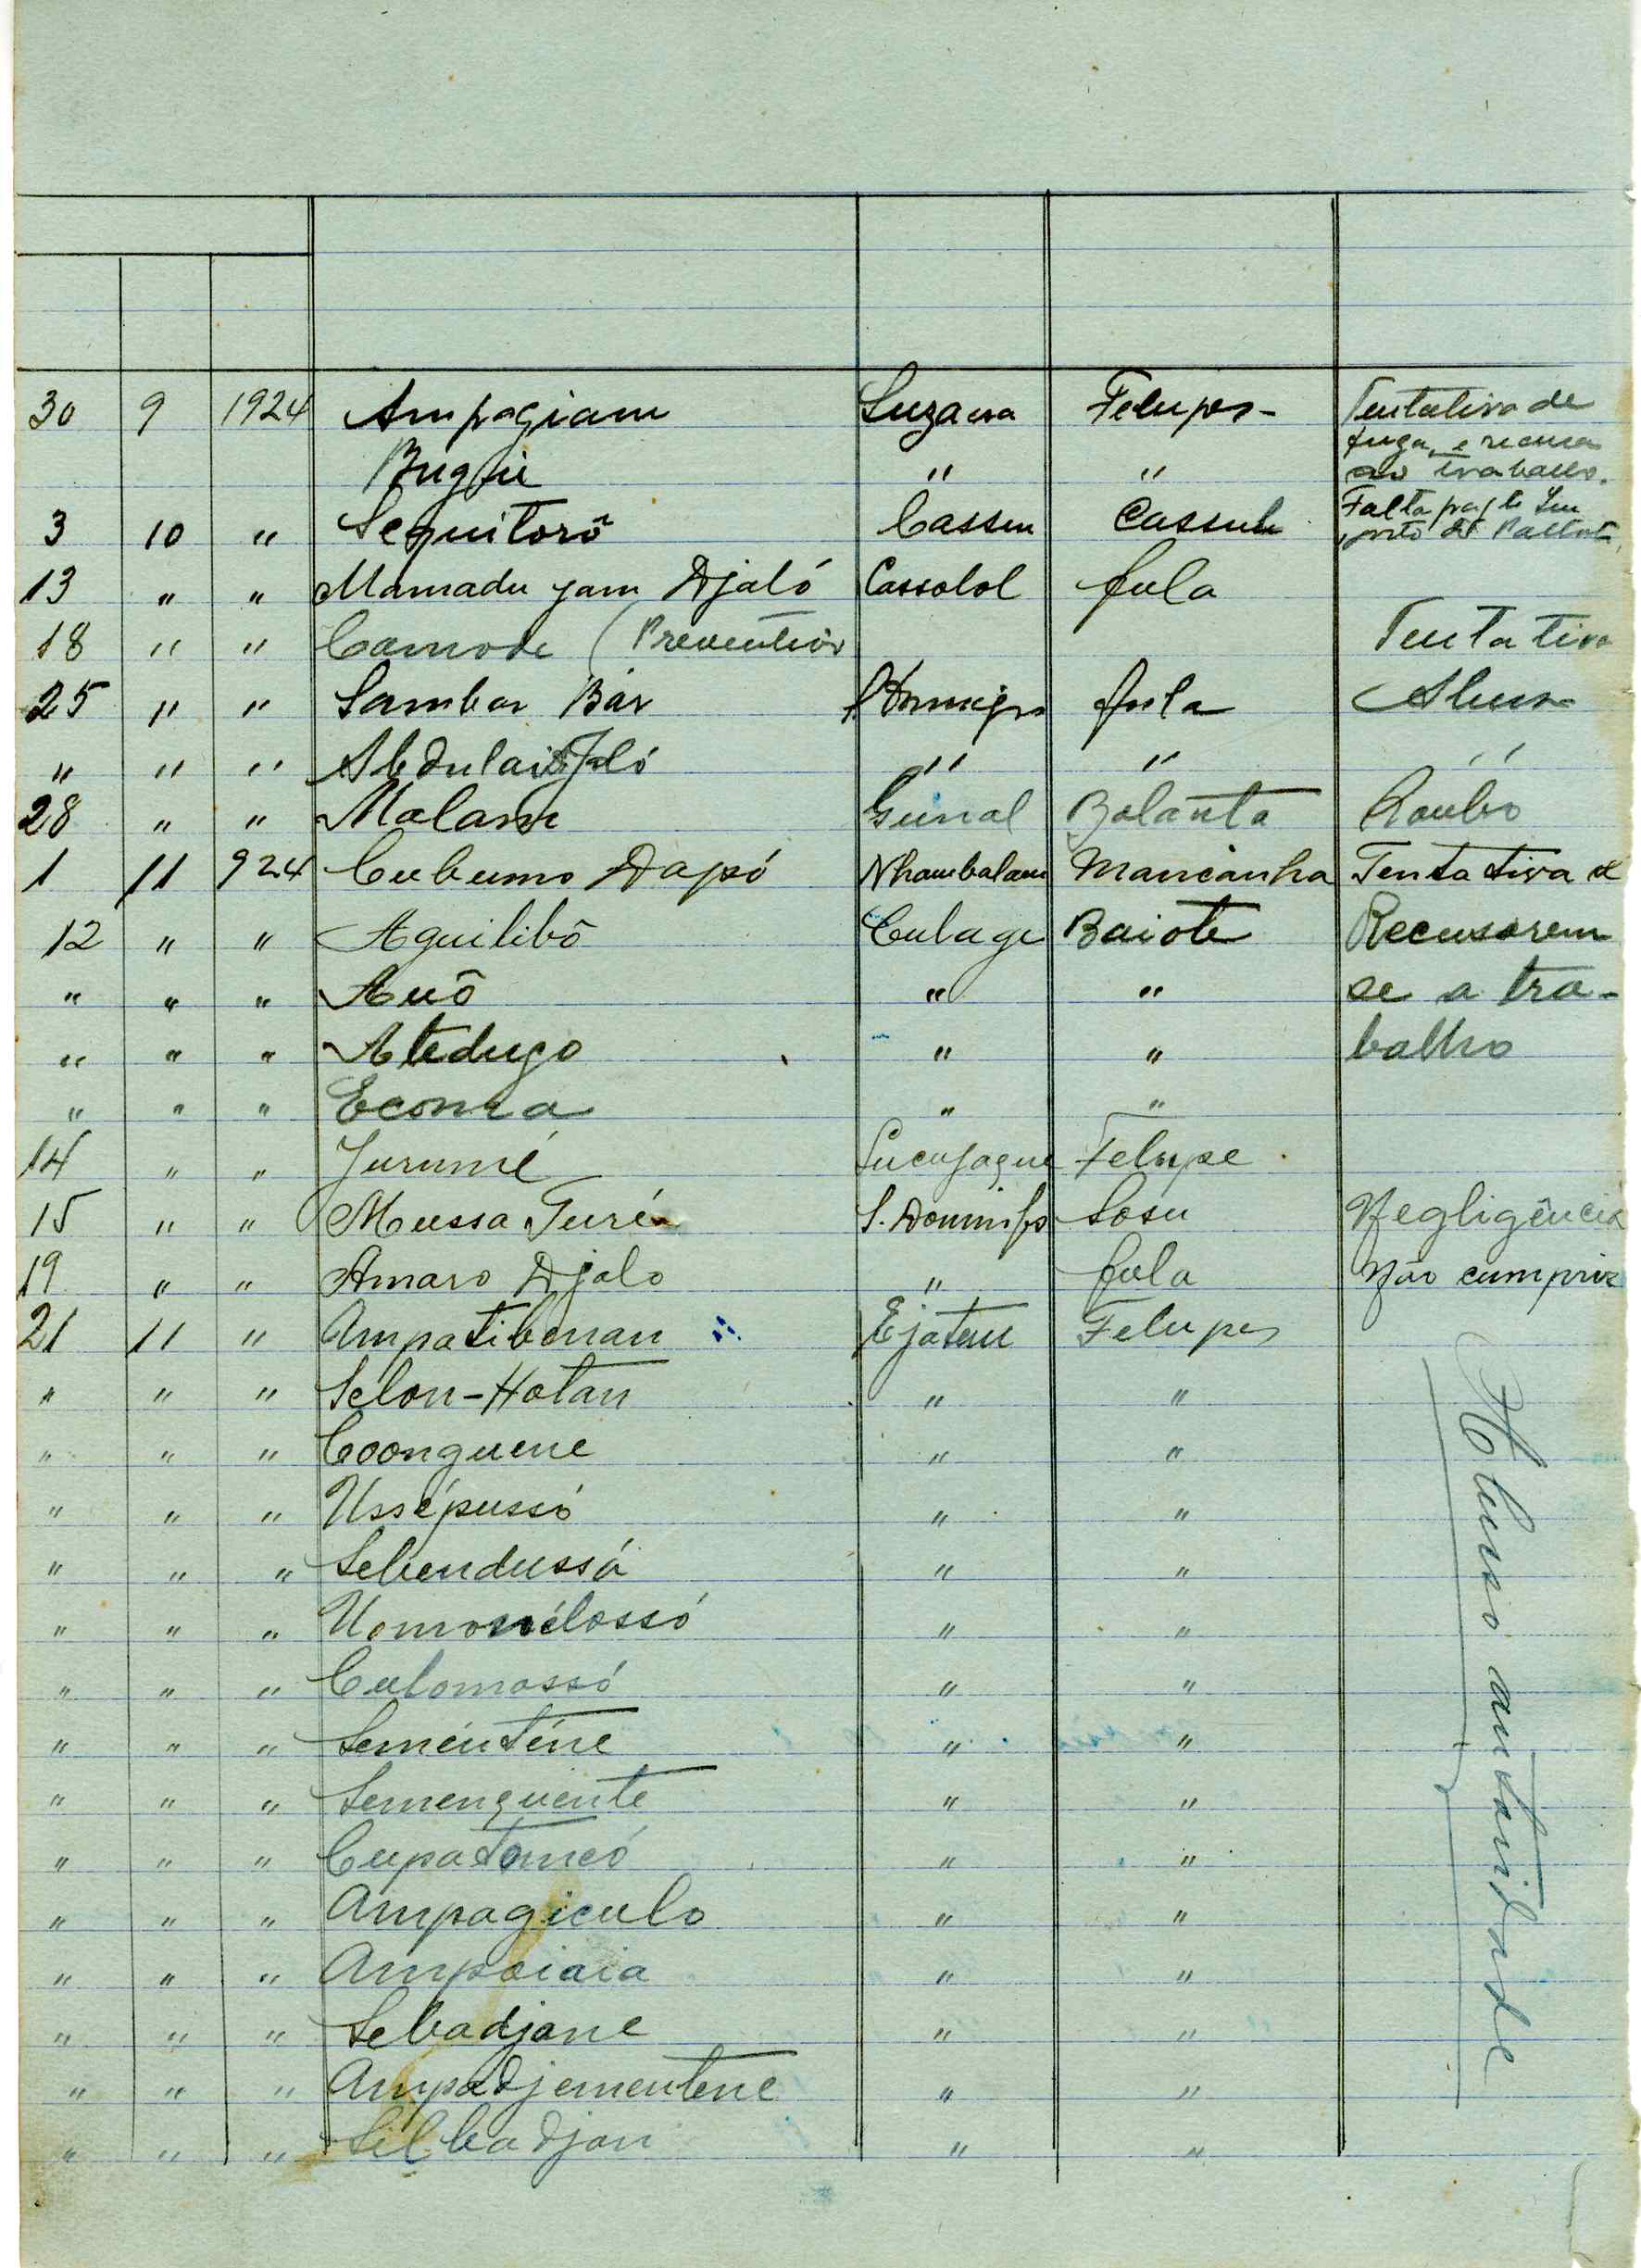 30 9 1924 Ampagiam Suzana Felupes - Tentativa de
fuga, e recusa
Buguie " " ao trabalho.
3 10 " Sequitorô Cassu Cassule Falta pag.to
13 " " Mamadu jam Djaló Cassolol fula
18 " " Camode (Preventivo Tentativa
25 " " Samba Bár fula Abuso
" " " Abdulai Jaló " " "
28 " " Malam Gunal Balanta Roubo
1 11 924 Cubumo Dapó Nhambalam Mancanha Tentativa d
12 " " Aguilibô Culage Baiote Recusarem
" " " Auô " " se a tra-
" " " Atedugo " " balho
" " " Econra " "
14 " " Jurumé Sucujaque Felupe
15 " " Mussa Turé S. Domingos Sosu Negligência
19 " " Amaro Djalo " fula Não cumprir
21 11 " Ampatibenan Ejaten Felupes
" " " Selon-Hotan " "
" " " Coonguene " "
" " " Ussépussó " "
" " " Sebendussá " "
" " " Uomonélossó " "
" " " Culomossó " "
" " " Seménténe " "
" " " Semenquente " "
" " " Cupatomeó " "
" " " Ampagiculo " "
" " " Ampaiaia " "
" " " Sebadjane " "
" " " Ampadjementene " "
" " " Silbadjan " "